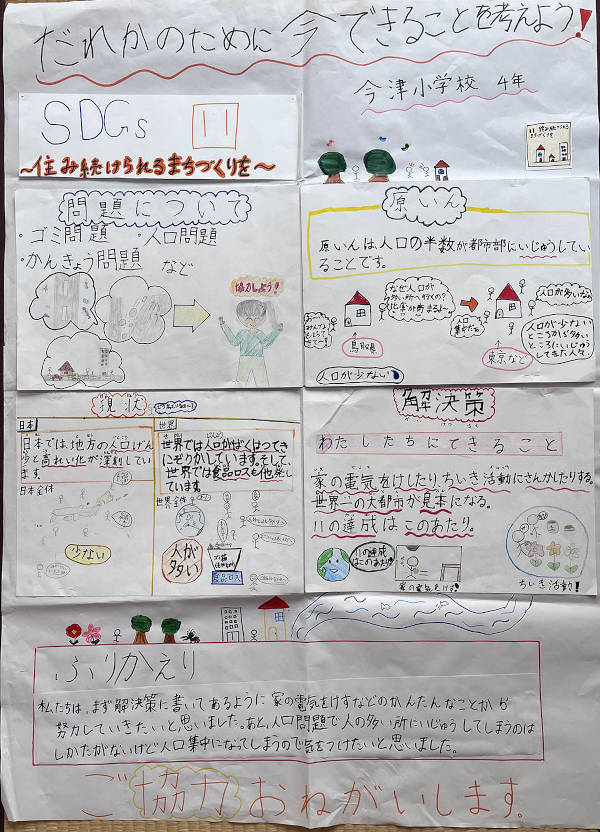 だれかのために今できることを考えよう!
今津小学校 4年
SDGs 11
～住み続けられるまちづくりを～
11 住み続けられる
まちづくりを
問題について
・ゴミ問題 ・人口問題
・かんきょう問題 など
協力しよう!
原いん
原いんは人口の半数が都市部にいじゅうしてい
ることです。
なぜ人口が
多い所へ行くの?
人口が多いなぁ
鳥取県
東京など
人口が少ない
人口が少ない
ところから多い
ところにいじゅう
してきた人々
現状
日本
日本では、地方の人口げん
少と高れい化が深刻してい
ます。
日本全体
少ない
世界
世界では人口がばくはつてき
にぞうかしています。そして、
世界では食品ロスも他発し
ています。
世界全体
人が
多い
食品ロス
解決策
わたしたちにできること
家の電気をけしたり、ちいき活動にさんかしたりする。
世界一の大都市が見本になる。
11の達成はこのあたり。
11の達成
はこのあたり!
家の電気をけす!
ちいき活動!
ふりかえり
私たちは、まず解決策に書いてあるように家の電気をけすなどのかんたんなことから
努力していきたいと思いました。あと、人口問題で人の多い所にいじゅうしてしまうのは
しかたがないけど人口集中になってしまうので気をつけたいと思いました。
ご協力おねがいします。